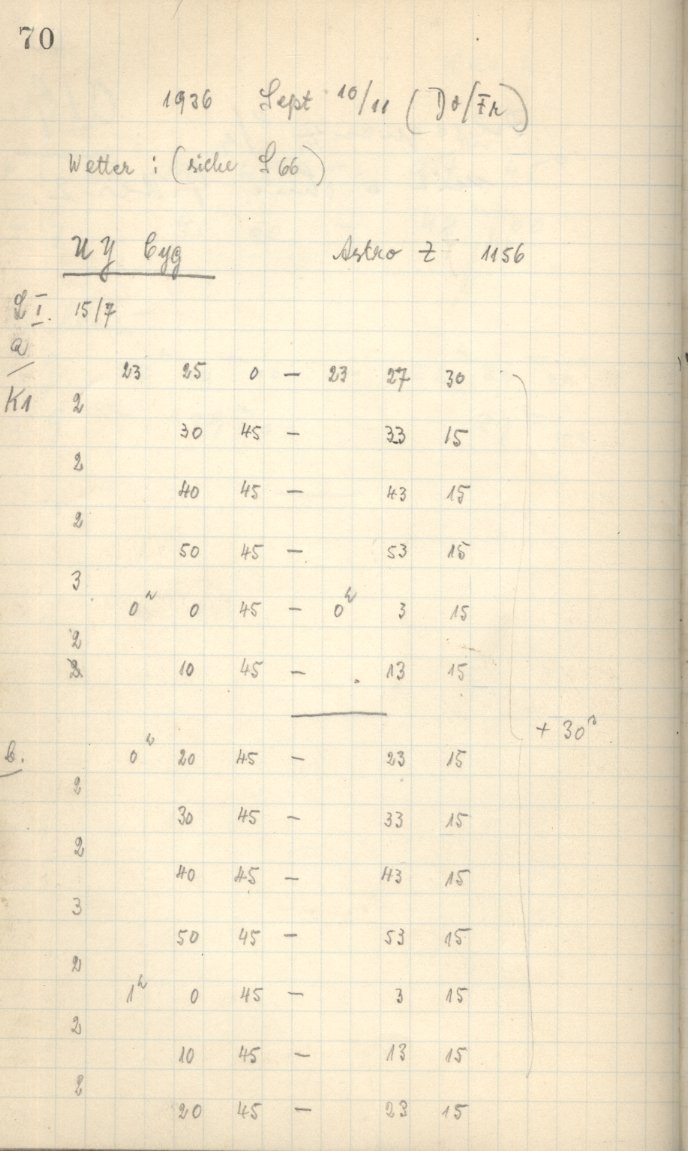 70
1936 Sept 10/11 (Do/Fr)
Wetter : (siehe S 66)
UY Cyg Astro Z 1156
I. 15/7
a
23 25 0 — 23 27 30
K1 2
30 45 — 33 15
2
40 45 — 43 15
2
50 45 — 53 15
3
0h 0 45 — 0h 3 15
2
10 45 — 13 15
+ 30s
b. 0h 20 45 — 23 15
2
30 45 — 33 15
2
40 45 — 43 15
3
50 45 — 53 15
2
1h 0 45 — 3 15
2
10 45 — 13 15
2
20 45 — 23 15